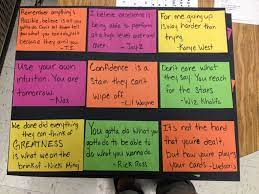 Remember anything's
Possible, believe in all you
gotta do. Don't let them tell
what you can't do
just
because they
-T.I.
I believe excellence is
being able to perform
at a high level over and
over.
-Jay Z
For me giving up
is way harder than
trying.
-Kanye West
Use your own
intuition. You are
tomorrow.
-Nas
Confidence is a
stain they can't
wipe off.
-Lil Wayne
Don't care what
they say. You reach
for the stars.
-Wiz Khalifa
We done did everything
they can think of
GREATNESS
is what we on the
brink of -Nicki Minaj
You gotta do what you
gotta do to be able to
do what you wanna do.
-Rick Ross
It's not the hand
that you're dealt,
but how you're playing
your cards -Ludacris